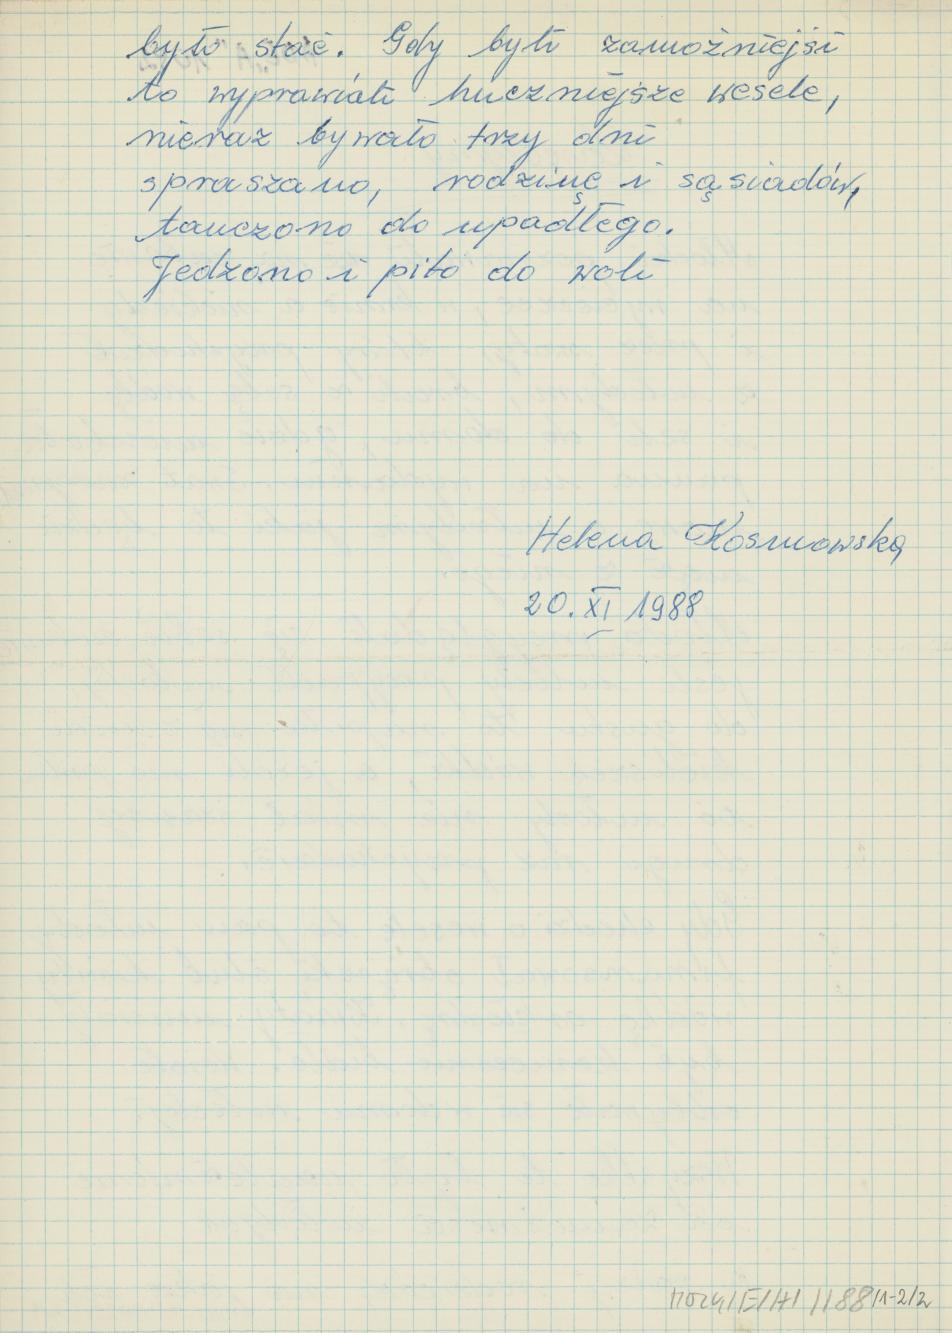 było stać. Gdy byli zamożniejsi
to wyprawiali huczniejsze wesele,
nieraz bywało trzy dni
spraszano, rodzinę i sąsiadów,
tańczono do upadłego.
Jedzono i pito do woli
Helena Kosmowska
20. XI 1988